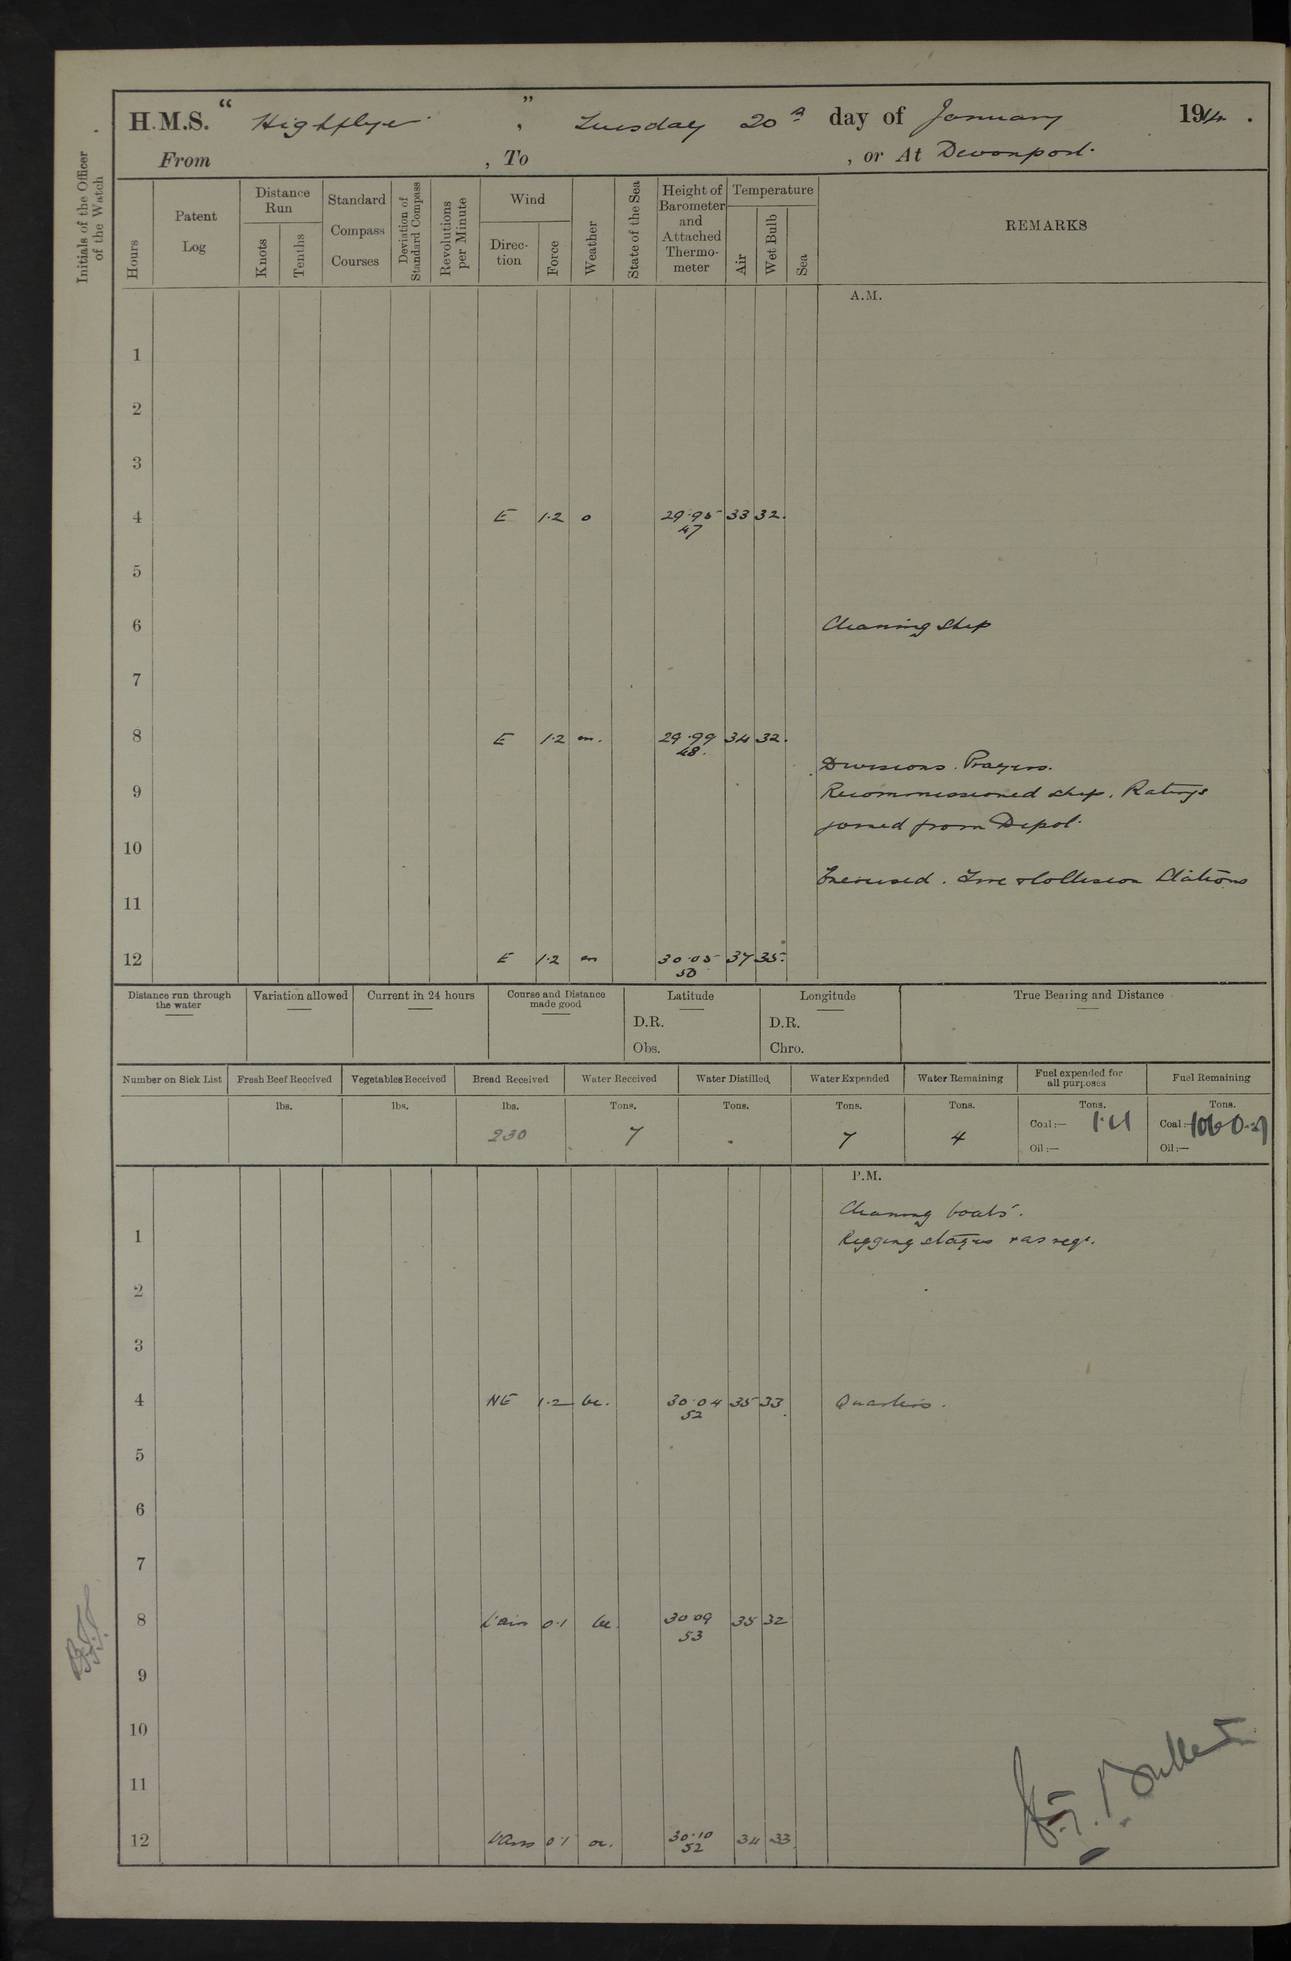 H.M.S. “ Highflyer ” , Tuesday 20th day of January 1914 .
From , To , or At Devonport.
Initials of the Officer of the Watch
Hours
Patent Log
Distance Run
Knots
Tenths
Standard Compass Courses
Deviation of Standard Compass
Revolutions per Minute
Wind
Direc-tion
Force
Weather
State of the Sea
Height of Barometer and Attached Thermo-meter
Temperature
Air
Wet Bulb
Sea
REMARKS
A.M.
1
2
3
4 E 1·2 o 29·95 33 32.
47
5
6 Cleaning ship
7
8 E 1·2 m. 29·99 34 32.
48.
Divisions. Prayers.
9 Recommissioned ship. Ratings
joined from Depot.
10
Exercised. Fire & Collision Stations
11
12 E 1·2 m 30·05 37 35.
50
Distance run through the water
Variation allowed
Current in 24 hours
Course and Distance made good
Latitude
D.R.
Obs.
Longitude
D.R.
Chro.
True Bearing and Distance
Number on Sick List
Fresh Beef Received
lbs.
Vegetables Received
lbs.
Bread Received
lbs.
230
Water Received
Tons.
7
Water Distilled
Tons.
Water Expended
Tons.
7
Water Remaining
Tons.
4
Fuel expended for all purposes
Tons.
Coal:—
Oil:—
Fuel Remaining
Tons.
Coal:—
Oil:—
P.M.
Cleaning boats.
1 Rigging stages & as reqr.
2
3
4 NE 1·2 bc. 30·04 35 33 Quarters.
52
5
6
7
8 L'airs 0·1 bc. 30 09 35 32
53
9
10
11
12 L'airs 0·1 oc. 30·10 34 33
52